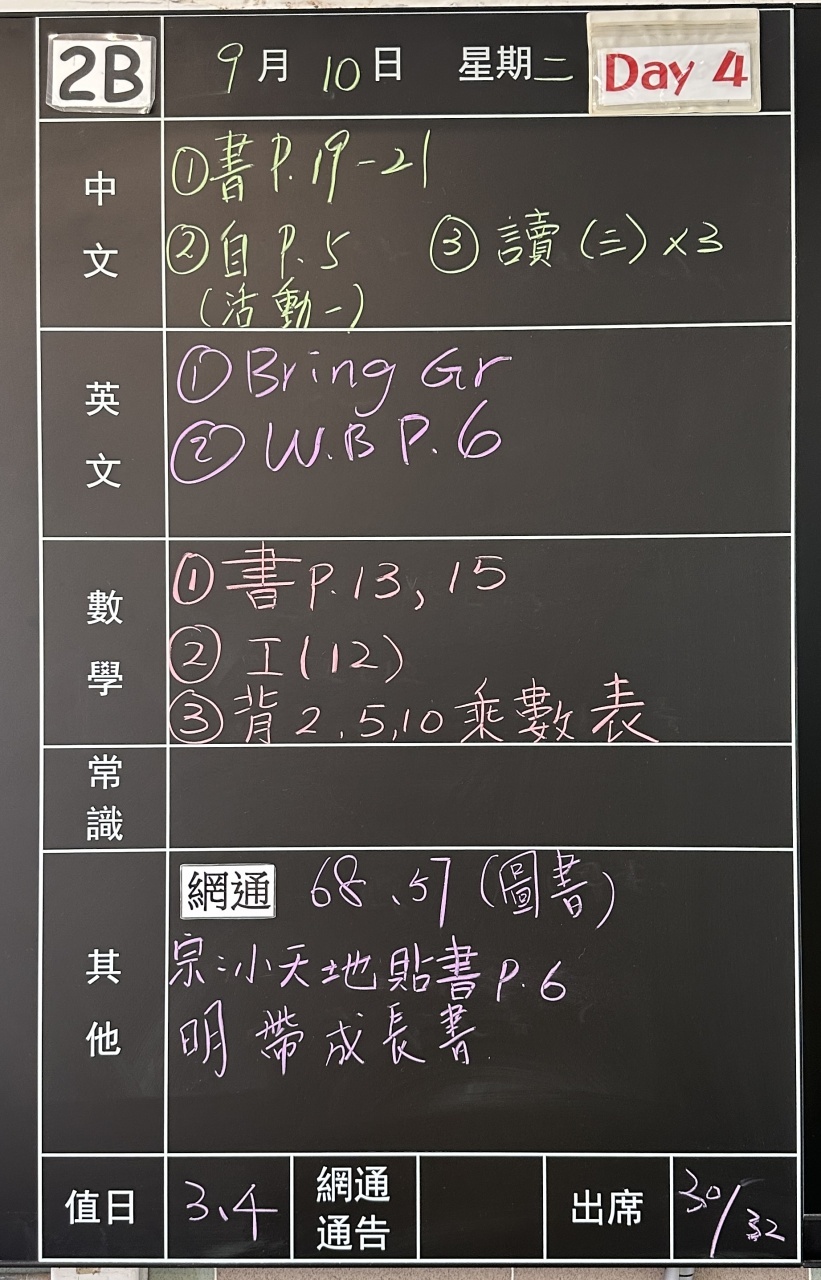 2B 9月10日 星期二 Day 4
中文
①書P.19-21
②自P.5 ③讀(三)×3
(活動一)
英文
①Bring Gr
②W.B P.6
數學
①書P.13, 15
②工(12)
③背2,5,10乘數表
常識
其他
網通 68、57(圖書)
宗:小天地貼書P.6
明帶成長書
值日 3、4 網通通告 出席 30/32